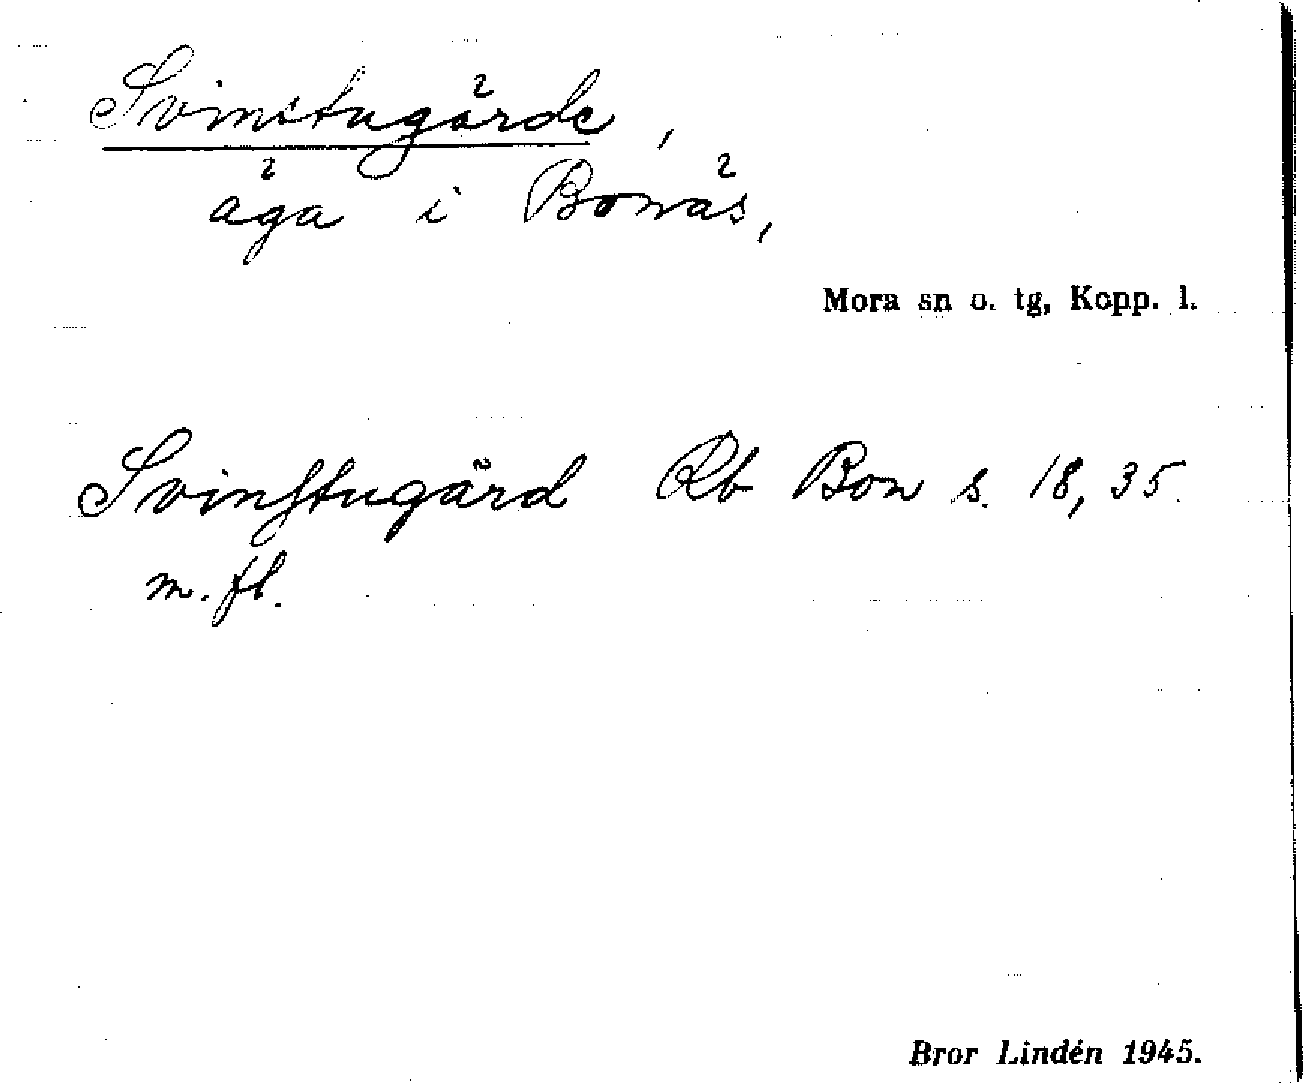 Svinstugärde,
äga i Bonäs,
Mora sn o. tg, Kopp. l.
Svinstugärd Rb Bon s. 18, 35
m. fl.
Bror Lindén 1945.